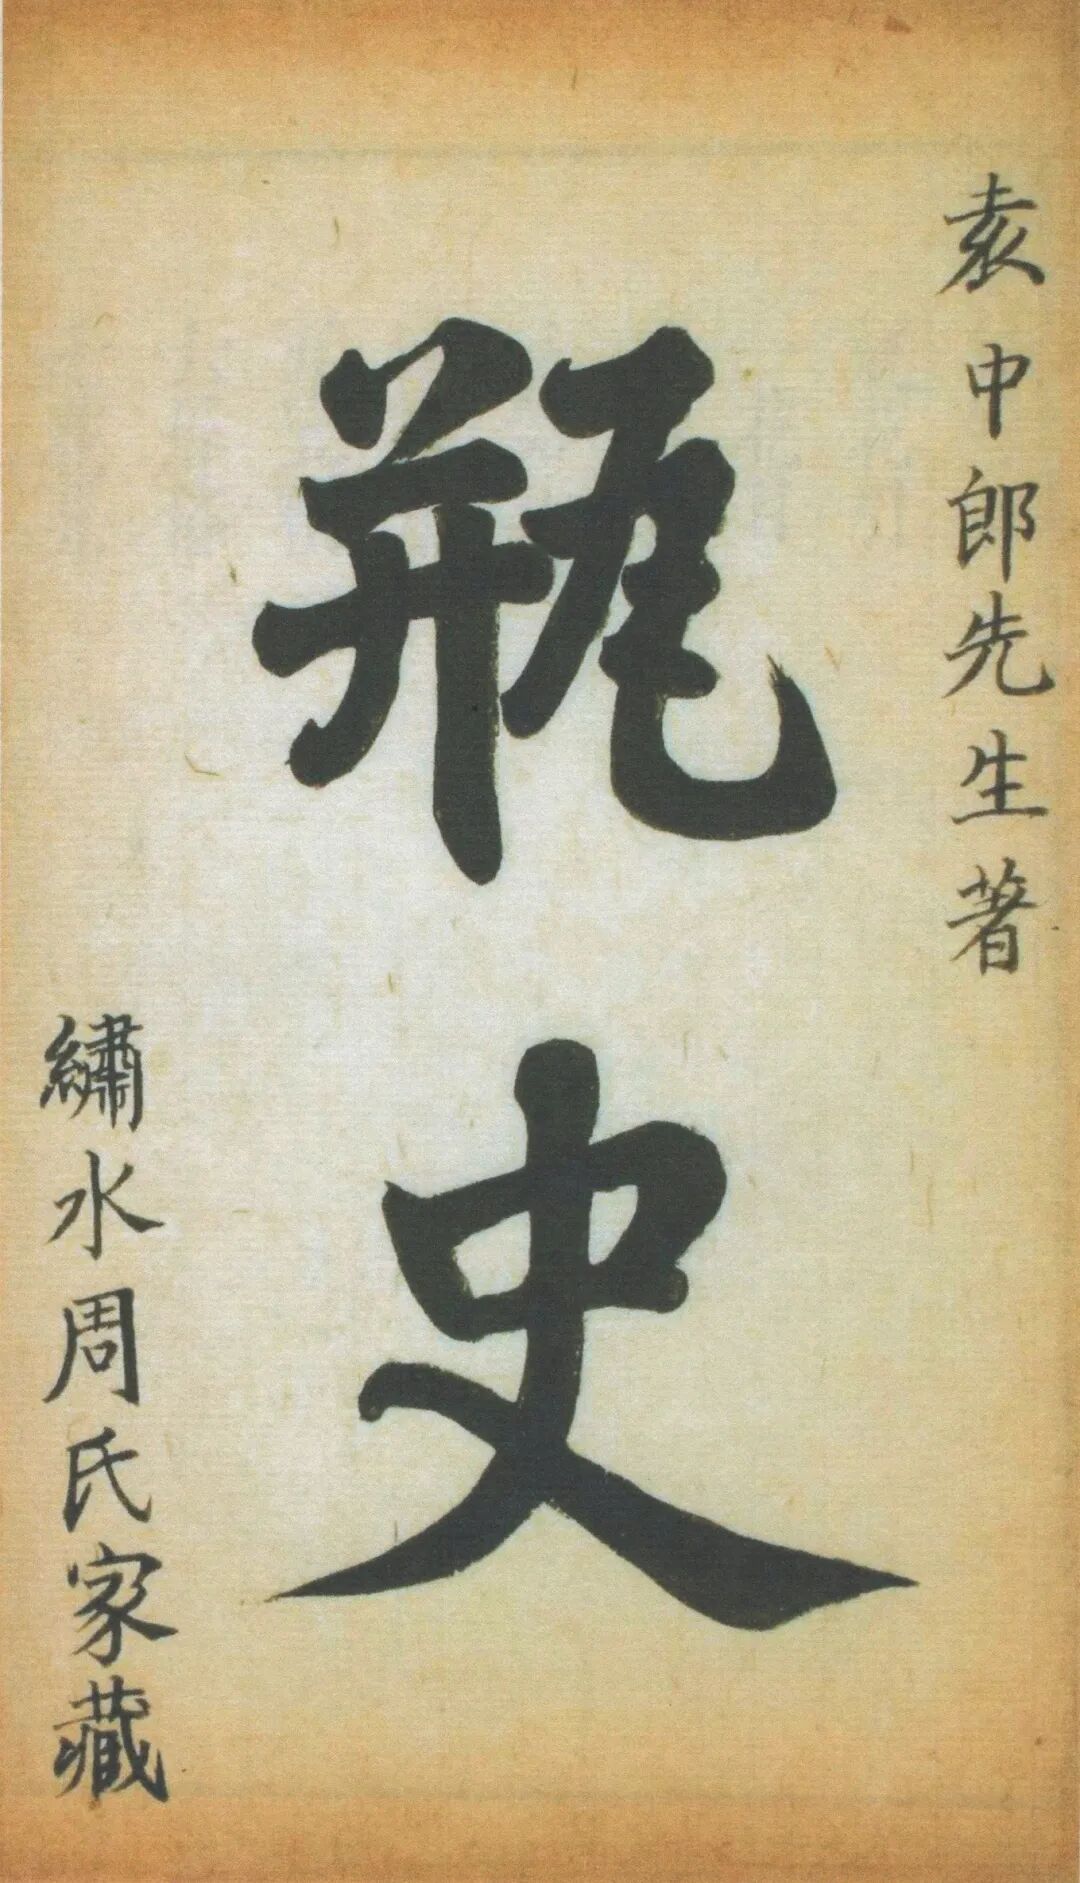 袁中郎先生著
瓶史
繡水周氏家藏